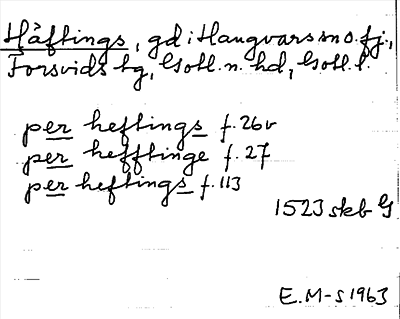 Häftings, gd i Hangvars sn o. fj.,
Forsvids tg, Gotl. n. hd, Gotl. l.
per heftings f. 26v
per heffttinge f. 27
per heftings f. 113
1523 skb G
E. M-s 1963